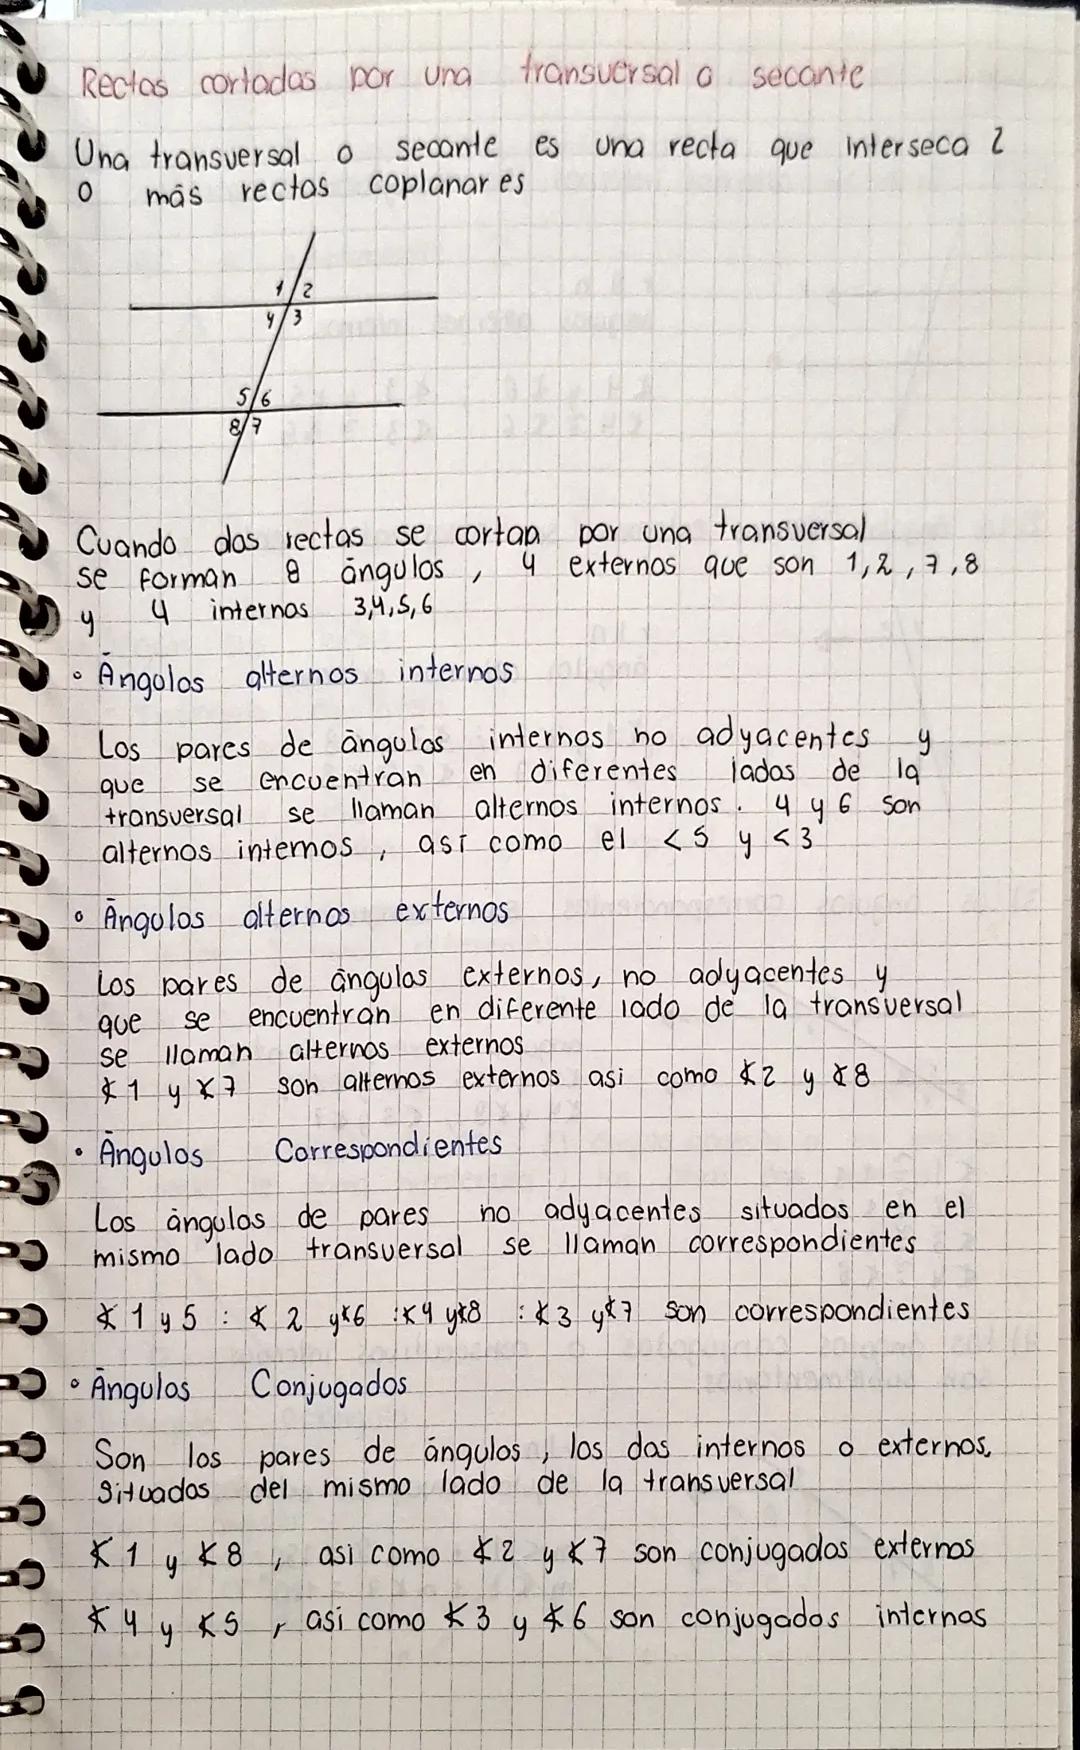 Rectas cortadas por una transversal o secante
Una transversal o secante es una recta que interseca 2
o más rectas coplanares
1 2
4 3
5 6
8 7
Cuando dos rectas se cortan por una transversal
se forman 8 ángulos, 4 externos que son 1,2,7,8
y 4 internos 3,4,5,6
• Ángulos alternos internos
Los pares de ángulos internos no adyacentes y
que se encuentran en diferentes lados de la
transversal se llaman alternos internos. 4 y 6 son
alternos internos, así como el <5 y <3
• Ángulos alternos externos
Los pares de ángulos externos, no adyacentes y
que se encuentran en diferente lado de la transversal
se llaman alternos externos
∡1 y ∡7 son alternos externos asi como ∡2 y ∡8
• Ángulos Correspondientes
Los ángulos de pares no adyacentes situados en el
mismo lado transversal se llaman correspondientes
∡1 y 5 : ∡2 y ∡6 : ∡4 y ∡8 : ∡3 y ∡7 son correspondientes
• Ángulos Conjugados
Son los pares de ángulos, los dos internos o externos,
situados del mismo lado de la transversal
∡1 y ∡8, asi como ∡2 y ∡7 son conjugados externos
∡4 y ∡5, asi como ∡3 y ∡6 son conjugados internos